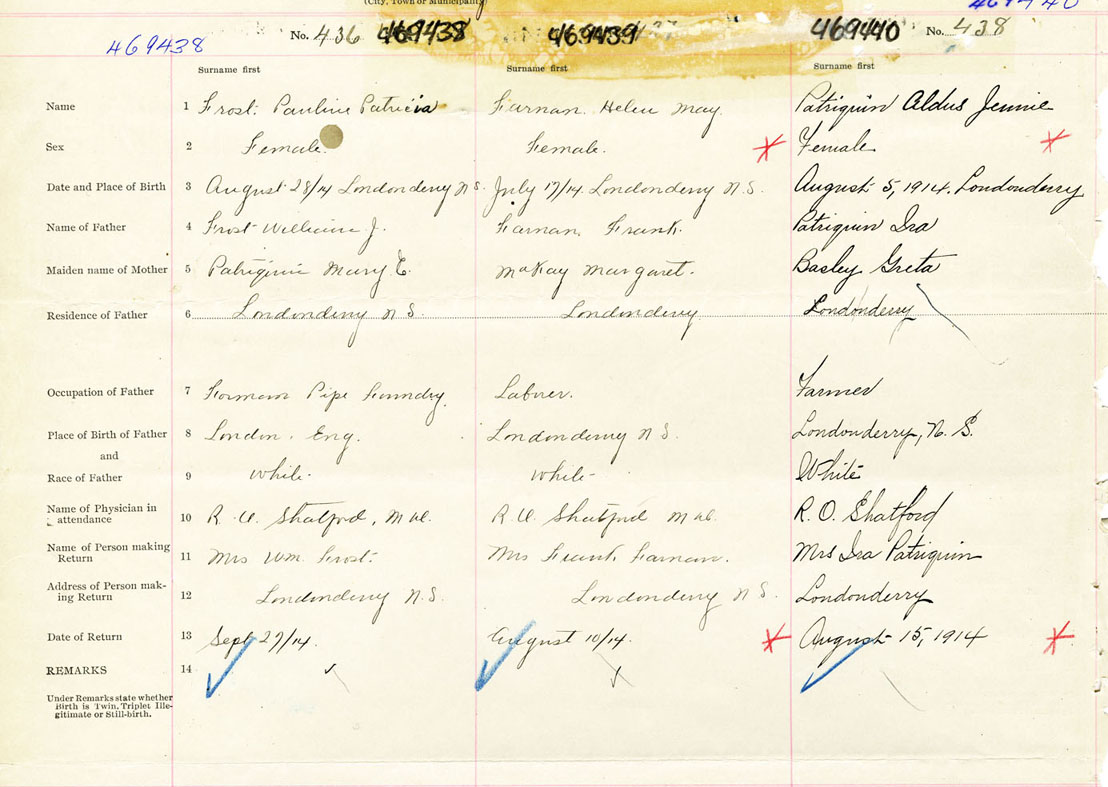 (City, Town or Municipality)
469438 No. 436 469438 469439 437 469440 No. 438
Surname first Surname first Surname first
Name 1 Frost. Pauline Patricia Farnan. Helen May. Patriquin Aldus Jennie
Sex 2 Female. Female. Female
Date and Place of Birth 3 August 28/14 Londonderry N S. July 17/14. Londonderry N. S. August 5, 1914. Londonderry
Name of Father 4 Frost William J. Farnan, Frank. Patriquin Ira
Maiden name of Mother 5 Patriquin Mary E. McKay Margaret. Basley Greta
Residence of Father 6 Londonderry N S. Londonderry Londonderry
Occupation of Father 7 Forman Pipe Foundry. Labrer. Farmer
Place of Birth of Father 8 London. Eng. Londonderry N S. Londonderry, N. S.
and
Race of Father 9 White White White
Name of Physician in
attendance 10 Shatford, Shatford R. O. Shatford
Name of Person making
Return 11 Mrs Wm. Frost. Mrs Frank Farnan. Mrs Ira Patriquin
Address of Person mak-
ing Return 12 Londonderry N. S. Londonderry N S. Londonderry
Date of Return 13 Sept 27/14. August 10/14. August 15, 1914
REMARKS 14
Under Remarks state whether
Birth is Twin, Triplet Ille-
gitimate or Still-birth.